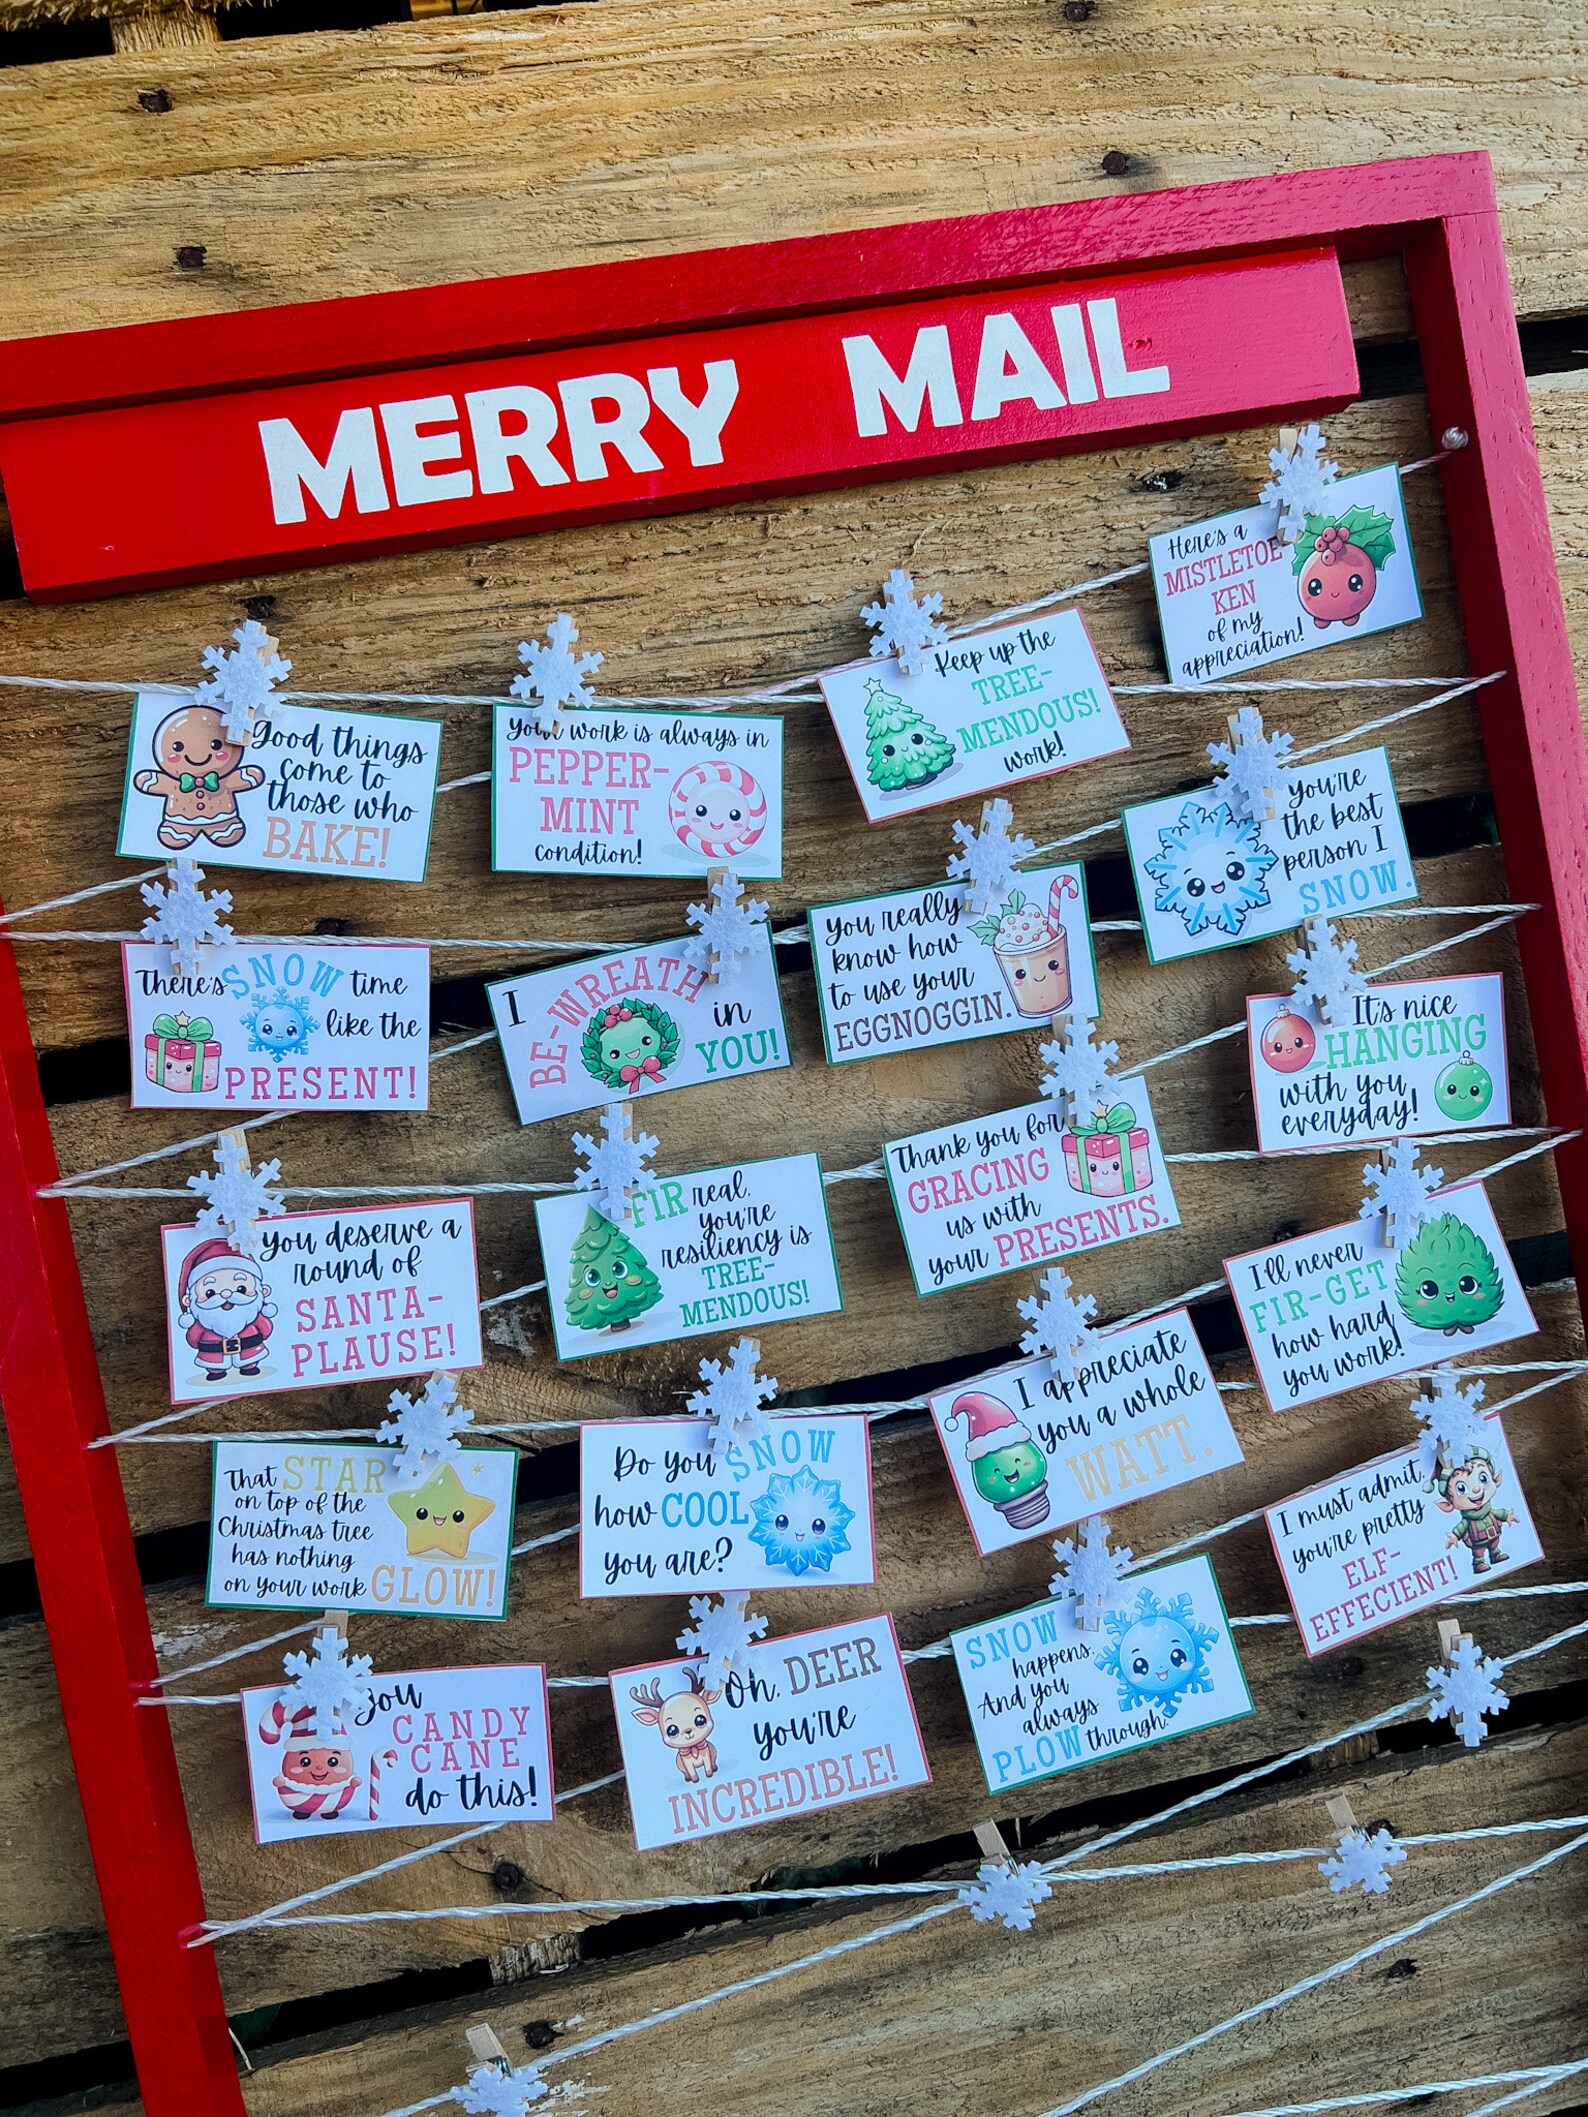 MERRY MAIL
Here's a
MISTLETOE
KEN
of my
appreciation!
Keep up the
TREE-
MENDOUS!
work!
Good things
come to
those who
BAKE!
Your work is always in
PEPPER-
MINT
condition!
you're
the best
person I
SNOW.
You really
know how
to use your
EGGNOGGIN.
There's SNOW time
like the
PRESENT!
I BE-WREATH in
YOU!
It's nice
HANGING
with you
everyday!
Thank you for
GRACING
us with
your PRESENTS.
You deserve a
round of
SANTA-
PLAUSE!
FIR real,
you're
resiliency is
TREE-
MENDOUS!
I'll never
FIR-GET
how hard
you work!
I appreciate
you a whole
WATT.
That STAR
on top of the
Christmas tree
has nothing
on your work GLOW!
Do you SNOW
how COOL
you are?
I must admit,
you're pretty
ELF-
EFFECIENT!
You
CANDY
CANE
do this!
Oh, DEER
you're
INCREDIBLE!
SNOW
happens.
And you
always
PLOW through.